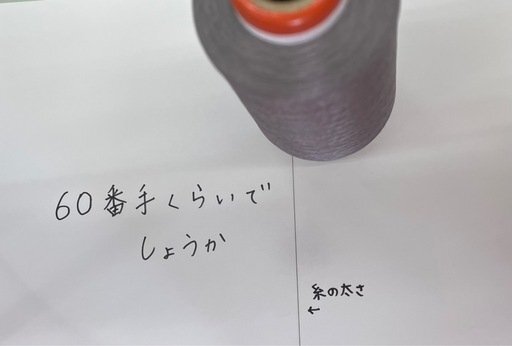 60番手くらいで
しょうか
糸の太さ
←